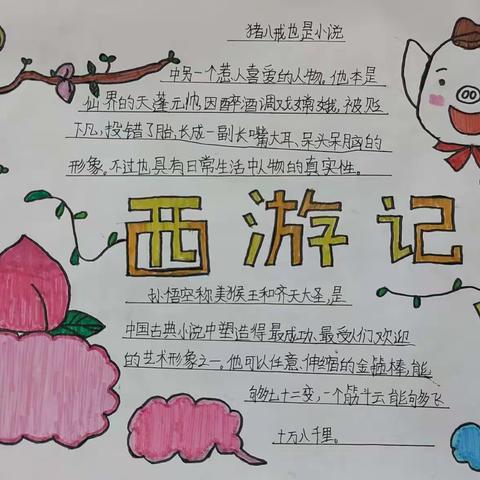 猪八戒也是小说
中另一个惹人喜爱的人物。他本是
仙界的天蓬元帅,因醉酒调戏嫦娥,被贬
下凡,投错了胎,长成一副长嘴大耳、呆头呆脑的
形象。不过也具有日常生活中人物的真实性。
西游记
孙悟空称美猴王和齐天大圣,是
中国古典小说中塑造得最成功、最受人们欢迎
的艺术形象之一。他可以任意伸缩的金箍棒,能
够七十二变,一个筋斗云能够飞
十万八千里。